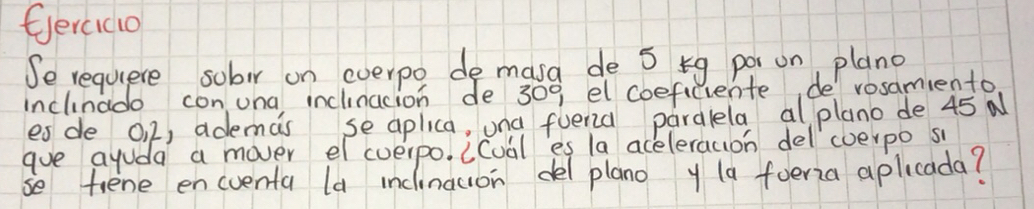 Ejercicio
Se requiere subir un cuerpo de masa de 5 kg por un plano
inclinado con una inclinación de 30º, el coeficiente de rosamiento
es de 0,2, además se aplica, una fuerza paralela al plano de 45 N
que ayuda a mover el cuerpo. ¿Cuál es la aceleración del cuerpo si
se tiene en cuenta la inclinación del plano y la fuerza aplicada?